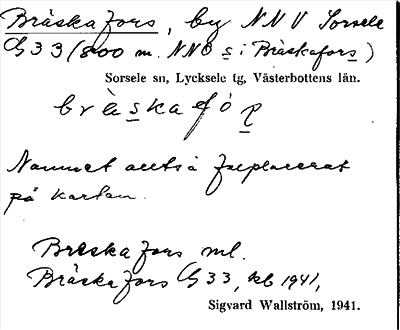 Bräskafors, by NNV Sorsele
G 33 (800 m. NNO s i Bräskafors)
Sorsele sn, Lycksele tg, Västerbottens län.
bräskafór
Namnet alltså felplacerat
på kartan.
Breskafors ml.
Bräskafors G 33, kb 1941,
Sigvard Wallström, 1941.